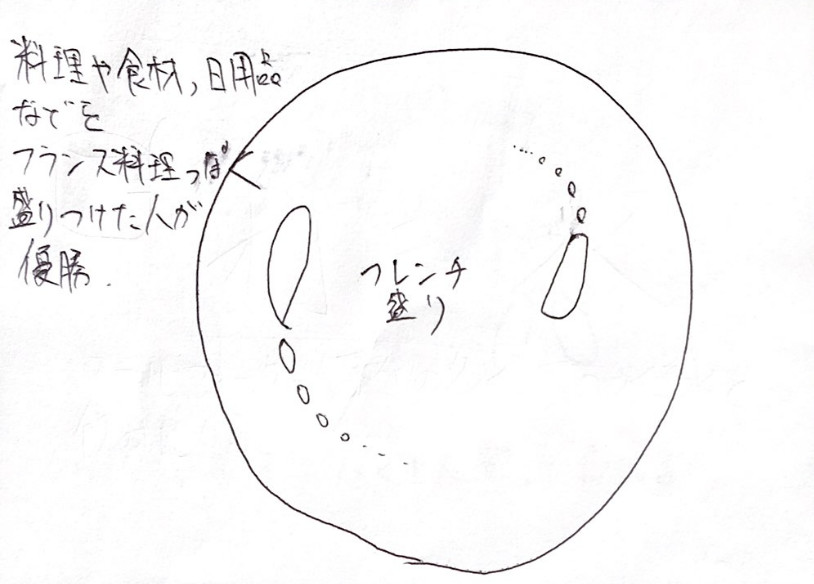 料理や食材,日用品
などを
フランス料理っぽく
盛りつけた人が
優勝.
フレンチ
盛り